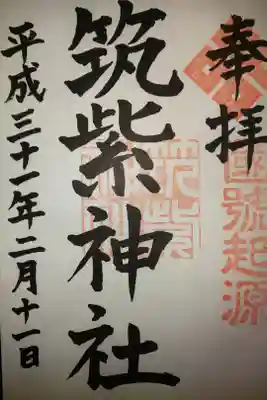 奉拝
國號起源
筑紫神社
平成三十一年二月十一日